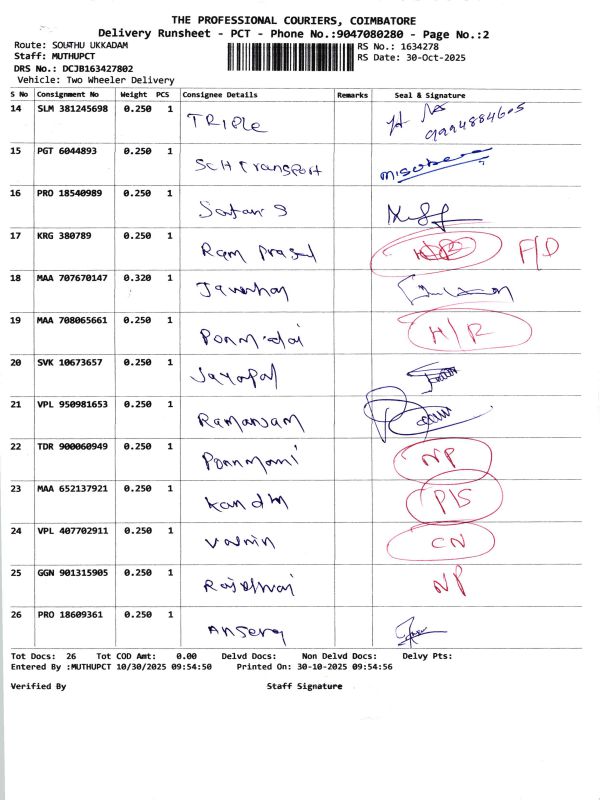 THE PROFESSIONAL COURIERS, COIMBATORE
Delivery Runsheet - PCT - Phone No.:9047080280 - Page No.:2
Route: SOUTHU UKKADAM
RS No.: 1634278
Staff: MUTHUPCT
RS Date: 30-Oct-2025
DRS No.: DCJB163427802
Vehicle: Two Wheeler Delivery
S No Consignment No Weight PCS Consignee Details Remarks Seal & Signature
14 SLM 381245698 0.250 1 TRIPle 9994884605
15 PGT 6044893 0.250 1 SCH Transport
16 PRO 18540989 0.250 1
17 KRG 380789 0.250 1 Ram Prasad F/D
18 MAA 707670147 0.320 1
19 MAA 708065661 0.250 1 H/R
20 SVK 10673657 0.250 1 Jayapal
21 VPL 950981653 0.250 1
22 TDR 900060949 0.250 1 NP
23 MAA 652137921 0.250 1 P/S
24 VPL 407702911 0.250 1 CN
25 GGN 901315905 0.250 1 NP
26 PRO 18609361 0.250 1
Tot Docs: 26 Tot COD Amt: 0.00 Delvd Docs: Non Delvd Docs: Delvy Pts:
Entered By :MUTHUPCT 10/30/2025 09:54:50 Printed On: 30-10-2025 09:54:56
Verified By Staff Signature